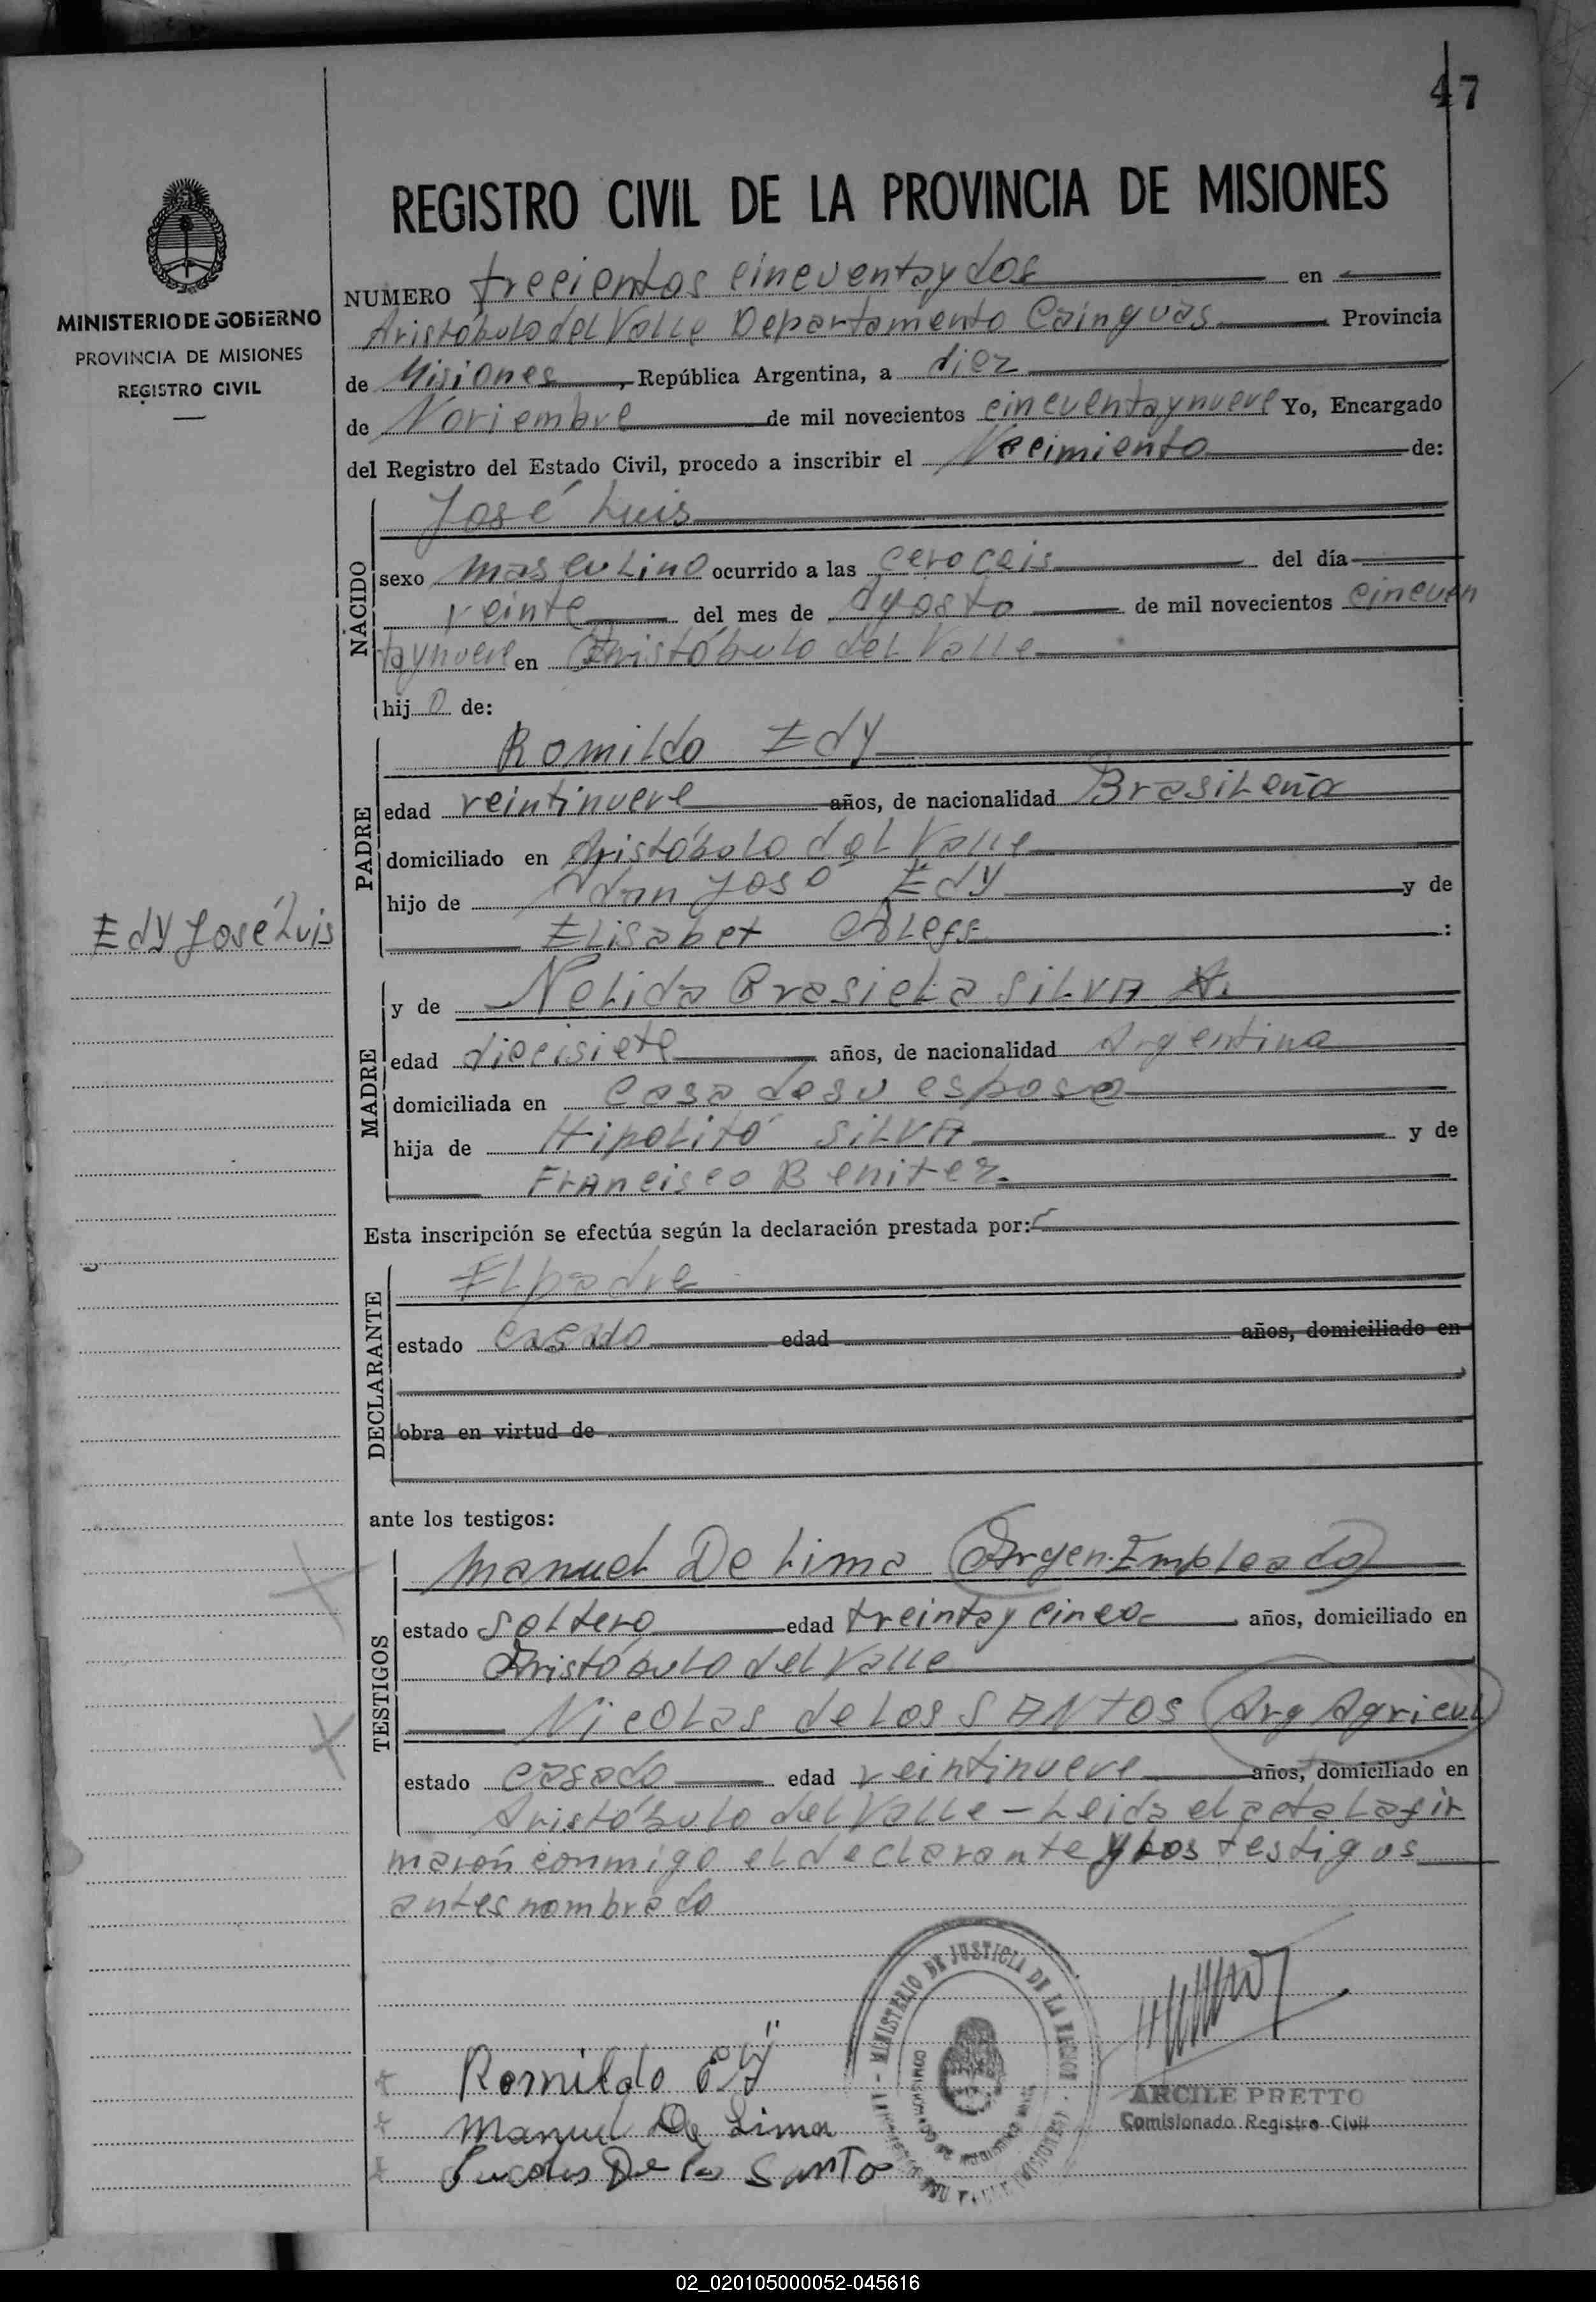 47
REGISTRO CIVIL DE LA PROVINCIA DE MISIONES
MINISTERIO DE GOBIERNO
PROVINCIA DE MISIONES
REGISTRO CIVIL
NUMERO trecientos cincuentaydos en
Aristóbulo del Valle Departamento Cainguás Provincia
de Misiones, República Argentina, a diez
de Noviembre de mil novecientos cincuentaynueve Yo, Encargado
del Registro del Estado Civil, procedo a inscribir el Nacimiento de:
NACIDO
José Luis
sexo masculino ocurrido a las cero ceis del día
veinte del mes de agosto de mil novecientos cincuen
taynueve en Aristóbulo del Valle
hijo de:
PADRE
Romildo Edy
edad veintinueve años, de nacionalidad Brasileña
domiciliado en Aristóbolo del Valle
hijo de Adan José Edy y de
Elisabet :
Edy José Luis
MADRE
y de Nelida Grasiela SiLVA
edad diecisiete años, de nacionalidad Argentina
domiciliada en casa desu esposo
hija de Hipolitó SiLVA y de
Francisco Benitez.
Esta inscripción se efectúa según la declaración prestada por:
DECLARANTE
El padre
estado casado edad años, domiciliado en
obra en virtud de
ante los testigos:
TESTIGOS
Manuel De Lima (Argen. Empleado)
estado Soltero edad treintay cinco años, domiciliado en
Aristóbulo del Valle
Nicolas de Los SANtOS (Arg Agricul
estado casado edad veintinueve años, domiciliado en
Aristóbulo del Valle - Leida el acta La fir
maron conmigo el declarante y Los testigos
antes nombrado
MINISTERIO DE JUSTICIA DE LA
Romildo
Manuel De Lima
De los Santo
ARCILE PRETTO
Comisionado Registro Civil
02_020105000052-045616